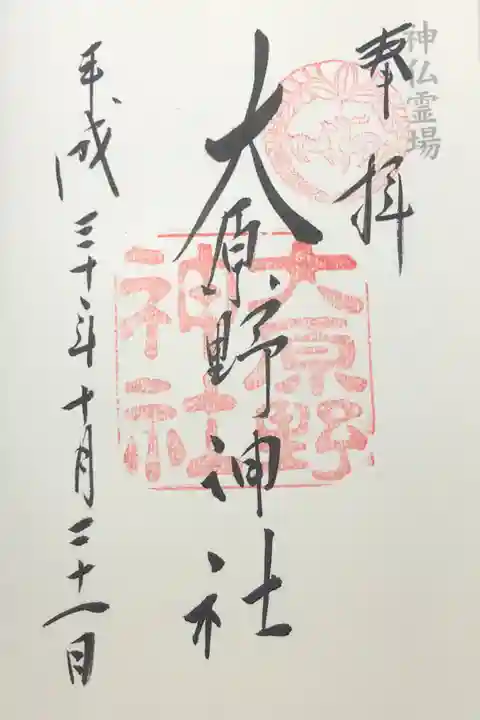 神仏霊場
奉拝
大原野神社
大原野
神社
平成三十年十月三十一日